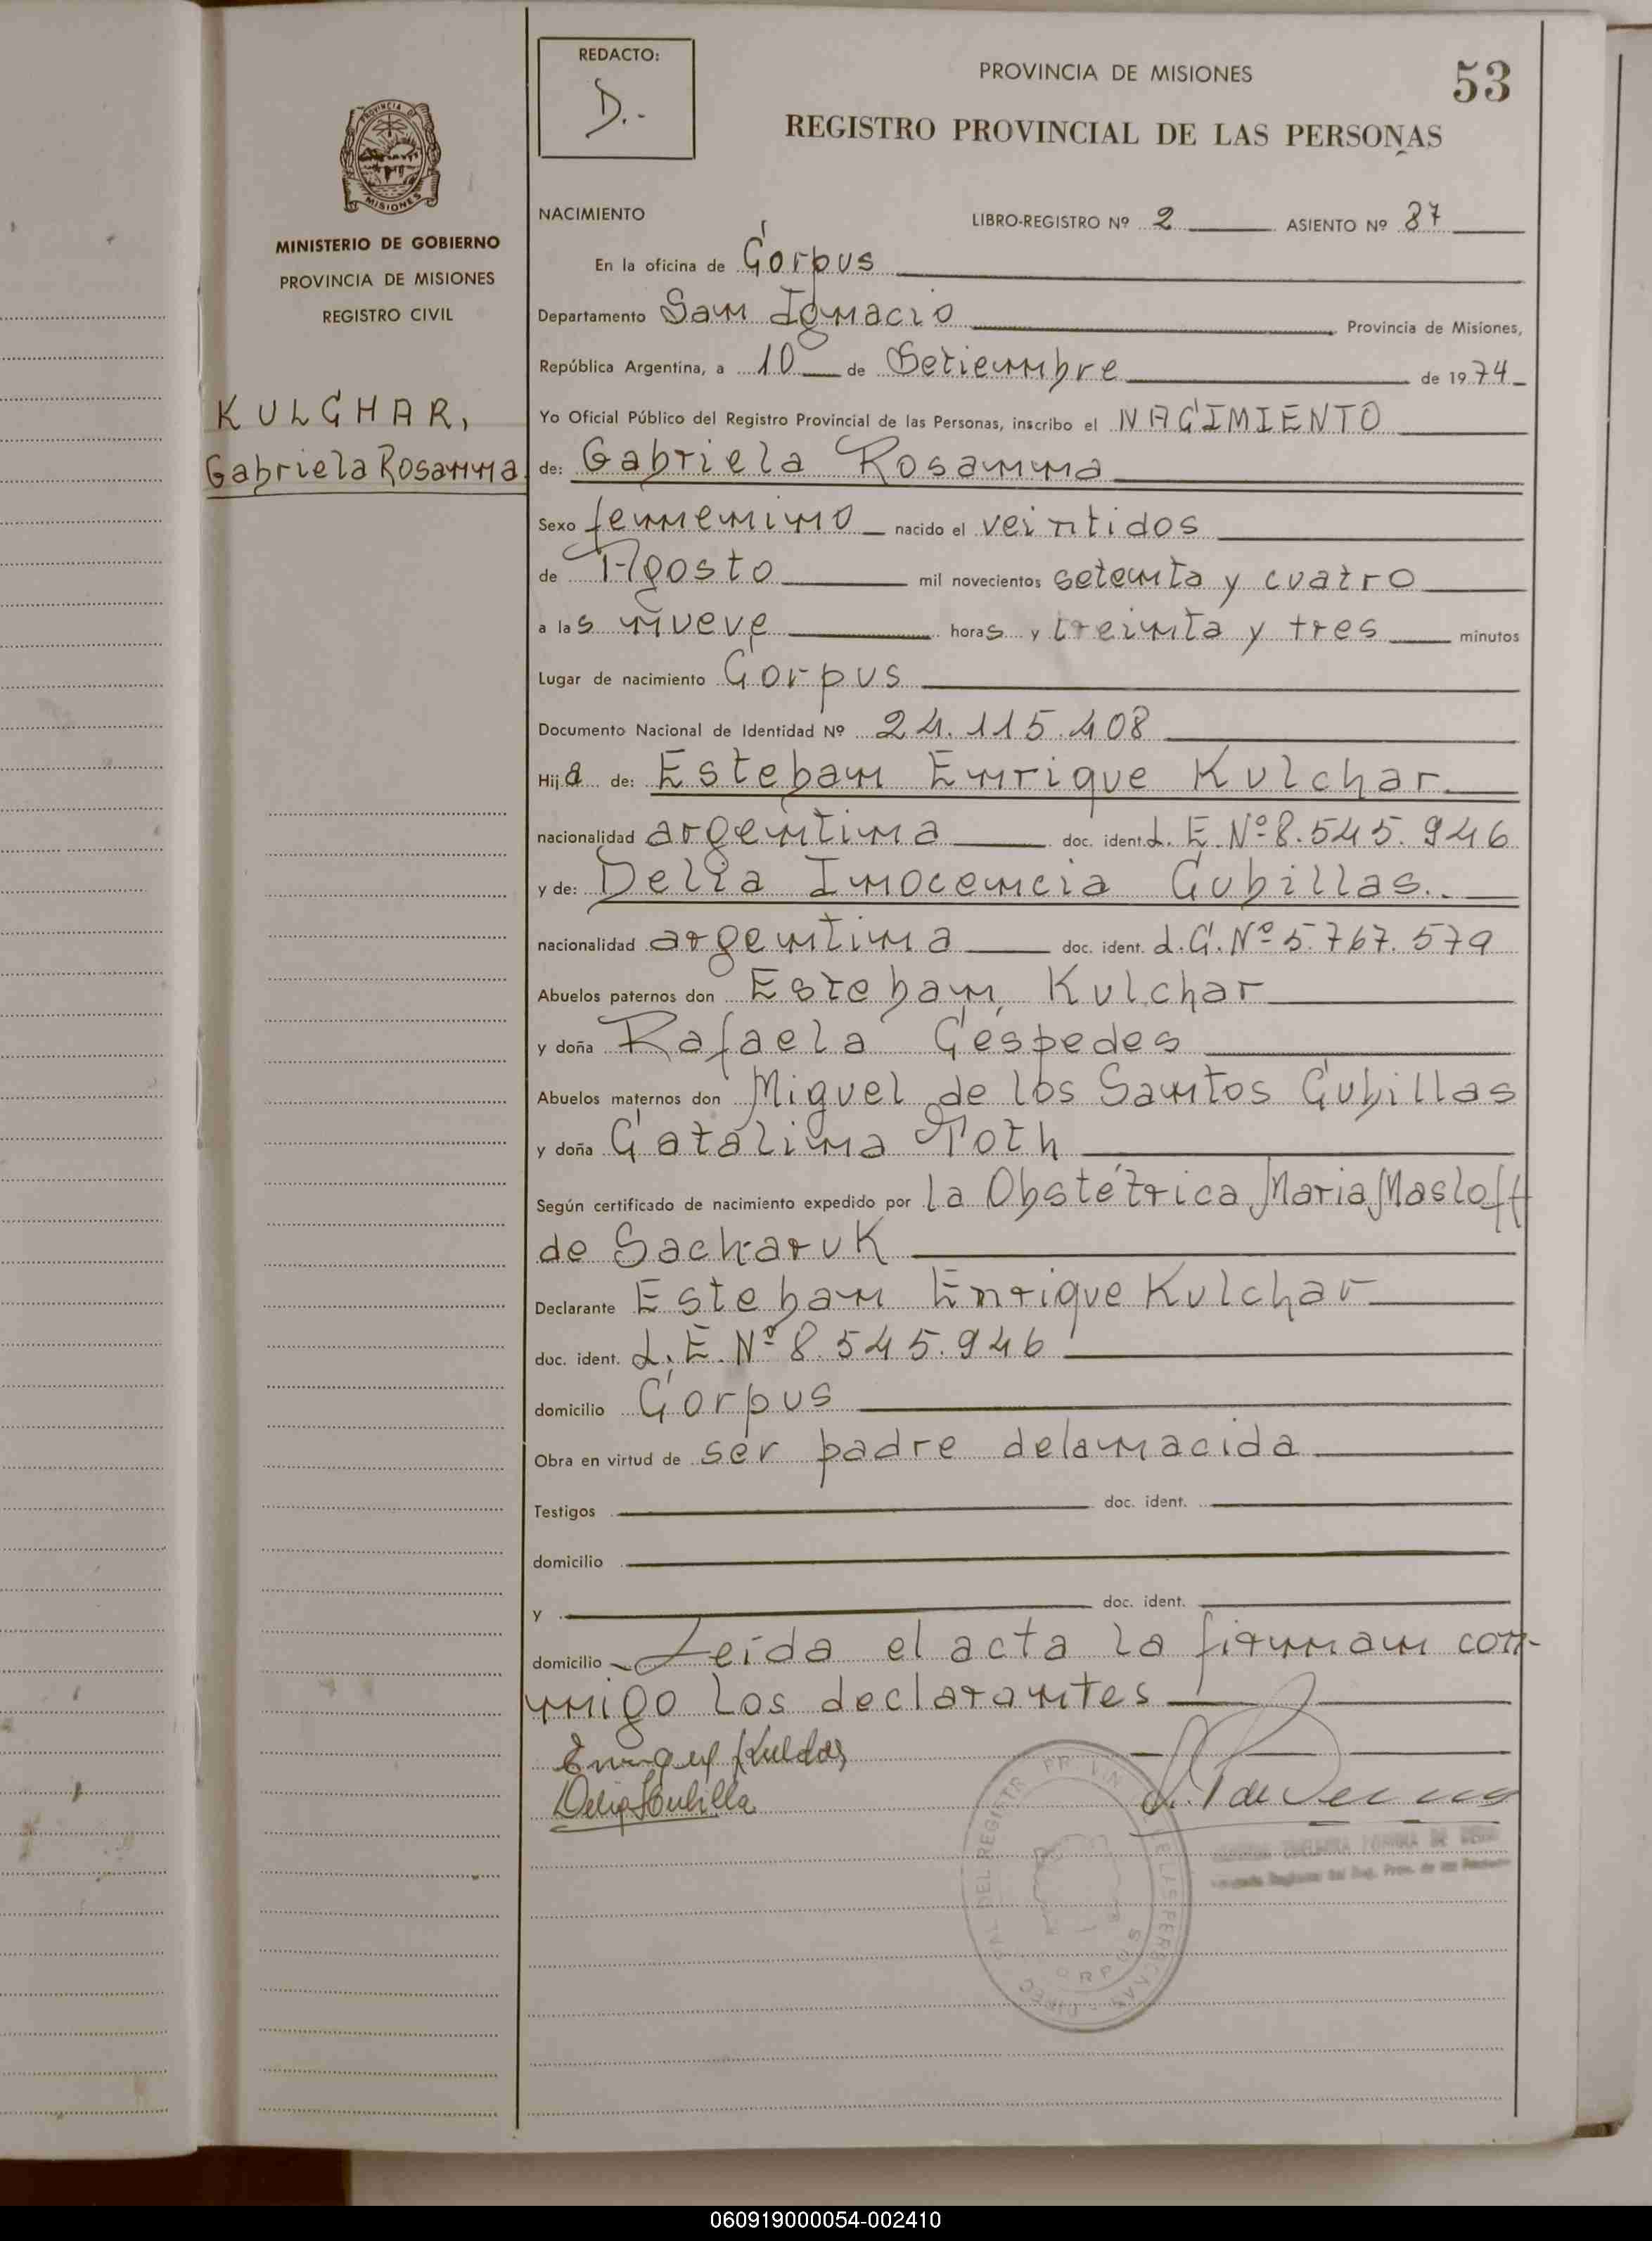 REDACTO:
D.-
PROVINCIA DE MISIONES
53
REGISTRO PROVINCIAL DE LAS PERSONAS
PROVINCIA DE
MISIONES
MINISTERIO DE GOBIERNO
PROVINCIA DE MISIONES
REGISTRO CIVIL
KULCHAR,
Gabriela Rosanna
NACIMIENTO LIBRO-REGISTRO Nº 2 ASIENTO Nº 87
En la oficina de Corpus
Departamento San Ignacio Provincia de Misiones,
República Argentina, a 10 de Setiembre de 1974
Yo Oficial Público del Registro Provincial de las Personas, inscribo el NACIMIENTO
de: Gabriela Rosanna
Sexo femenino nacido el veintidos
de Agosto mil novecientos setenta y cuatro
a las nueve horas y treinta y tres minutos
Lugar de nacimiento Corpus
Documento Nacional de Identidad Nº 24.115.408
Hija de: Esteban Enrique Kulchar
nacionalidad argentina doc. ident. L.E.Nº 8.545.946
y de: Delia Inocencia Cubillas.
nacionalidad argentina doc. ident. L.C.Nº 5.767.579
Abuelos paternos don Esteban Kulchar
y doña Rafaela Céspedes
Abuelos maternos don Miguel de los Santos Cubillas
y doña Catalina Toth
Según certificado de nacimiento expedido por la Obstétrica Maria Masloff
de Sacharuk
Declarante Esteban Enrique Kulchar
doc. ident. L.E.Nº 8.545.946
domicilio Corpus
Obra en virtud de ser padre de la nacida
Testigos doc. ident.
domicilio
y doc. ident.
domicilio Leída el acta la firman con-
migo los declarantes
060919000054-002410